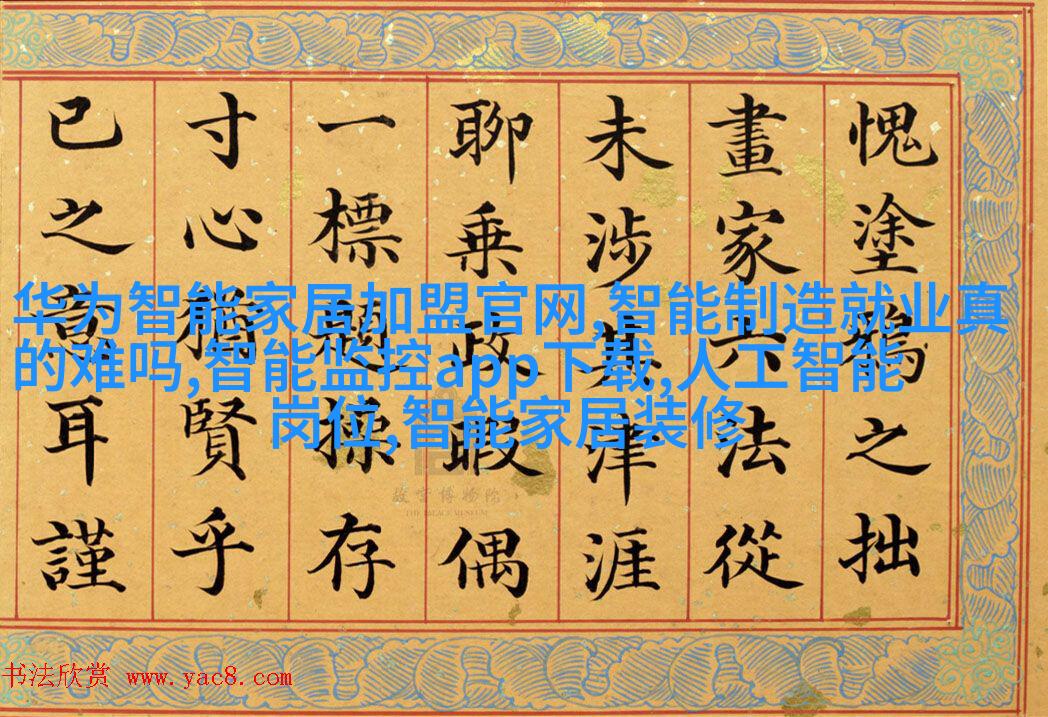 愧塗鴉之拙
畫家六法從
未涉其津涯
聊乘政暇偶
一標題操存
寸心猶賢乎
已之耳謹
华为智能家居加盟官网,智能制造就业真
的难吗,智能监控app下载,人工智能
岗位,智能家居装修
故宫博物院
THE PALACE MUSEUM
书法欣赏 www.yac8.com